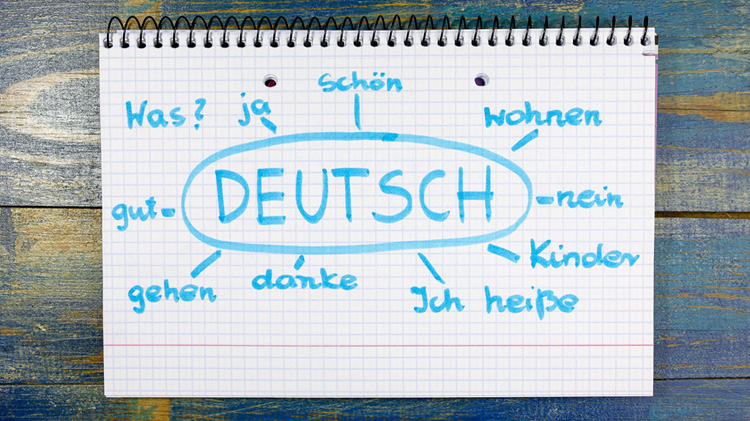 schön
Was? ja
wohnen
DEUTSCH
gut
nein
Kinder
gehen
danke
Ich heiße